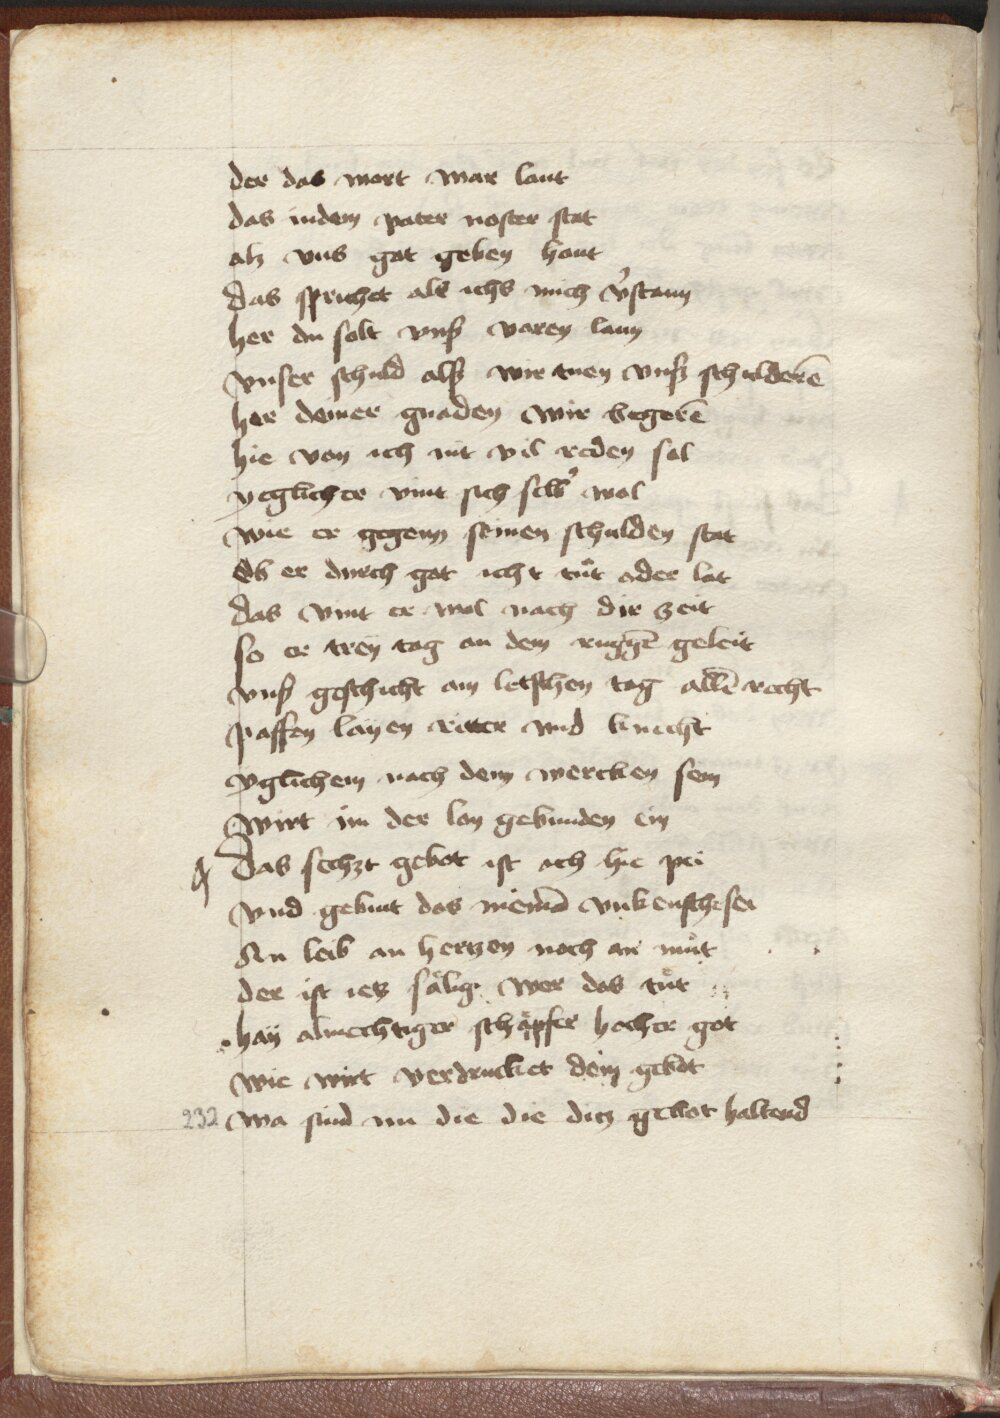 der das wort war laut
das indem pater noster stat
alz vns got geben haut
das sprichet als ichs mich v̾stann
her du solt vnß varen lann
vnser schuld alß wir tuen vnß schulderē
her deiner gnaden wir begerē
hie von ich nit vil reden sol
yeglicher vint sich selb̾ wol
wie er gegenn seinen schulden stat
Ob er durch got icht tuͦt oder lat
das vint er wol nach dir zeit
so er treÿ tag an dem ruggē geleit
vnß geschicht am letschen tag allē recht
pfaffen layen ritter vnd knecht
yglichem nach dem wercken sein
wirt im der lon gebunden ein
Das sechzt gebot ist och hie pei
vnd gebiut das niemād vnkensch sei
An leib an hertzen noch an muͦt
der ist ietz sålig wer das tuͦt
haÿ almechtiger schåpfer hocher got
wie wirt verdrucket dein gebot
232 wa sind nu die die ditz gebot haltend